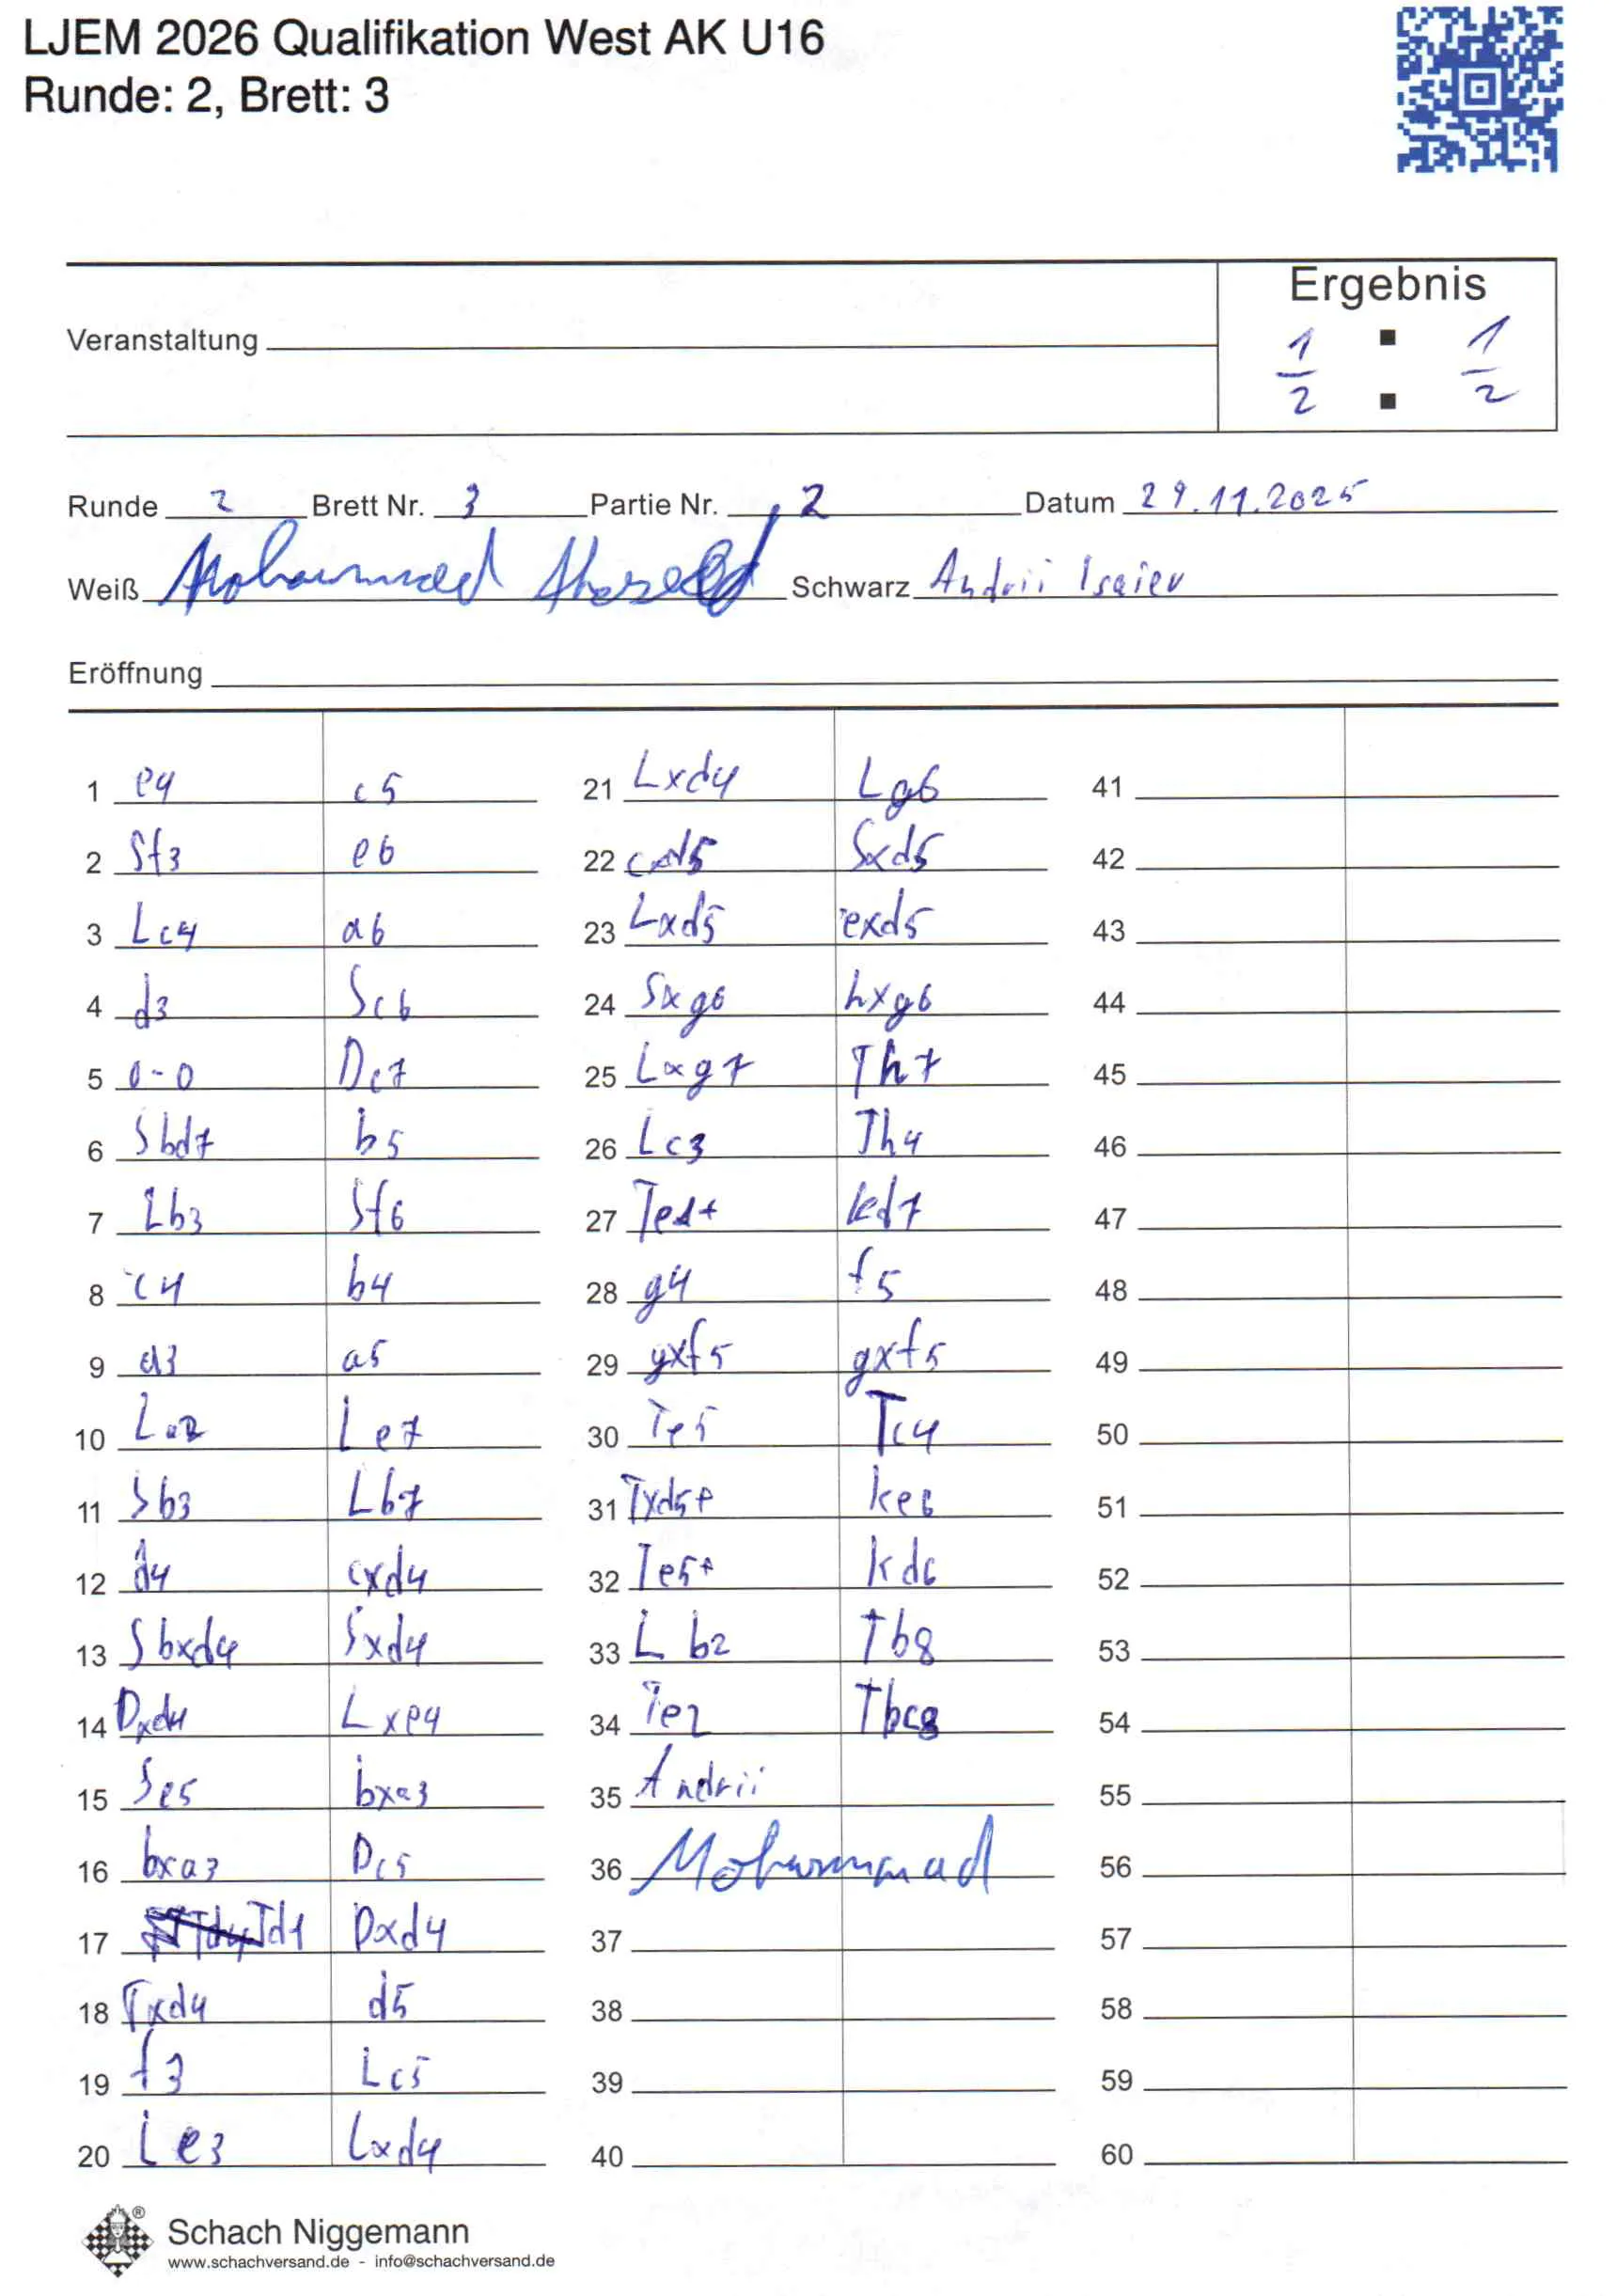 LJEM 2026 Qualifikation West AK U16
Runde: 2, Brett: 3
Ergebnis
Veranstaltung
1/2 : 1/2
Runde 2 Brett Nr. 3 Partie Nr. 2 Datum 29.11.2025
Weiß Mohammad Schwarz Andrii Isaiev
Eröffnung
1 e4 c5
2 Sf3 e6
3 Lc4 a6
4 d3 Sc6
5 0-0 Dc7
6 Sbd7 b5
7 Lb3 Sf6
8 c4 b4
9 a3 a5
10 La2 Le7
11 Sb3 Lb7
12 d4 cxd4
13 Sbxd4 Sxd4
14 Dxd4 Lxe4
15 Se5 bxa3
16 bxa3 Dc5
17 Td1 Dxd4
18 Txd4 d5
19 f3 Lc5
20 Le3 Lxd4
21 Lxd4 Lg6
22 cxd5 Sxd5
23 Lxd5 exd5
24 Sxg6 hxg6
25 Lxg7 Th7
26 Lc3 Th4
27 Te1+ kd7
28 g4 f5
29 gxf5 gxf5
30 Te5 Tc4
31 Txd5+ ke6
32 Te5+ kd6
33 Lb2 Tb8
34 Te2 Tbc8
35 Andrii
36 Mohammad
37
38
39
40
41
42
43
44
45
46
47
48
49
50
51
52
53
54
55
56
57
58
59
60
Schach Niggemann
www.schachversand.de - info@schachversand.de